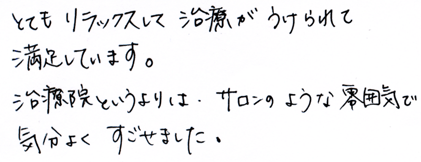 とても リラックスして 治療が うけられて
満足しています。
治療院というよりは、サロンのような雰囲気で
気分よく すごせました。